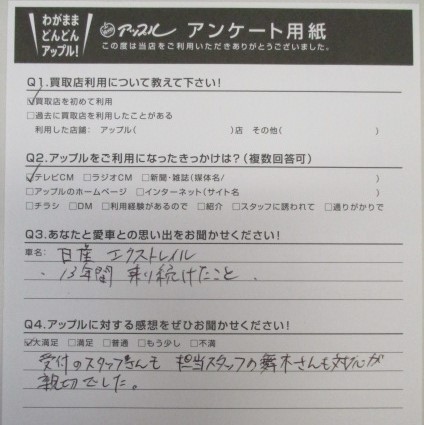 わがまま
どんどん
アップル!
アップル アンケート用紙
この度は当店をご利用いただきありがとうございました。
Q1.買取店利用について教えて下さい!
☑買取店を初めて利用
□過去に買取店を利用したことがある
利用した店舗: アップル( )店 その他( )
Q2.アップルをご利用になったきっかけは?(複数回答可)
☑テレビCM □ラジオCM □新聞・雑誌(媒体名/ )
□アップルのホームページ □インターネット(サイト名 )
□チラシ □DM □利用経験があるので □紹介 □スタッフに誘われて □通りがかりで
Q3.あなたと愛車との思い出をお聞かせください!
車名: 日産 エクストレイル
・13年間 乗り続けたこと.
Q4.アップルに対する感想をぜひお聞かせください!
☑大満足 □満足 □普通 □もう少し □不満
受付のスタッフさんも 担当スタッフの舞木さんも対応が
親切でした。